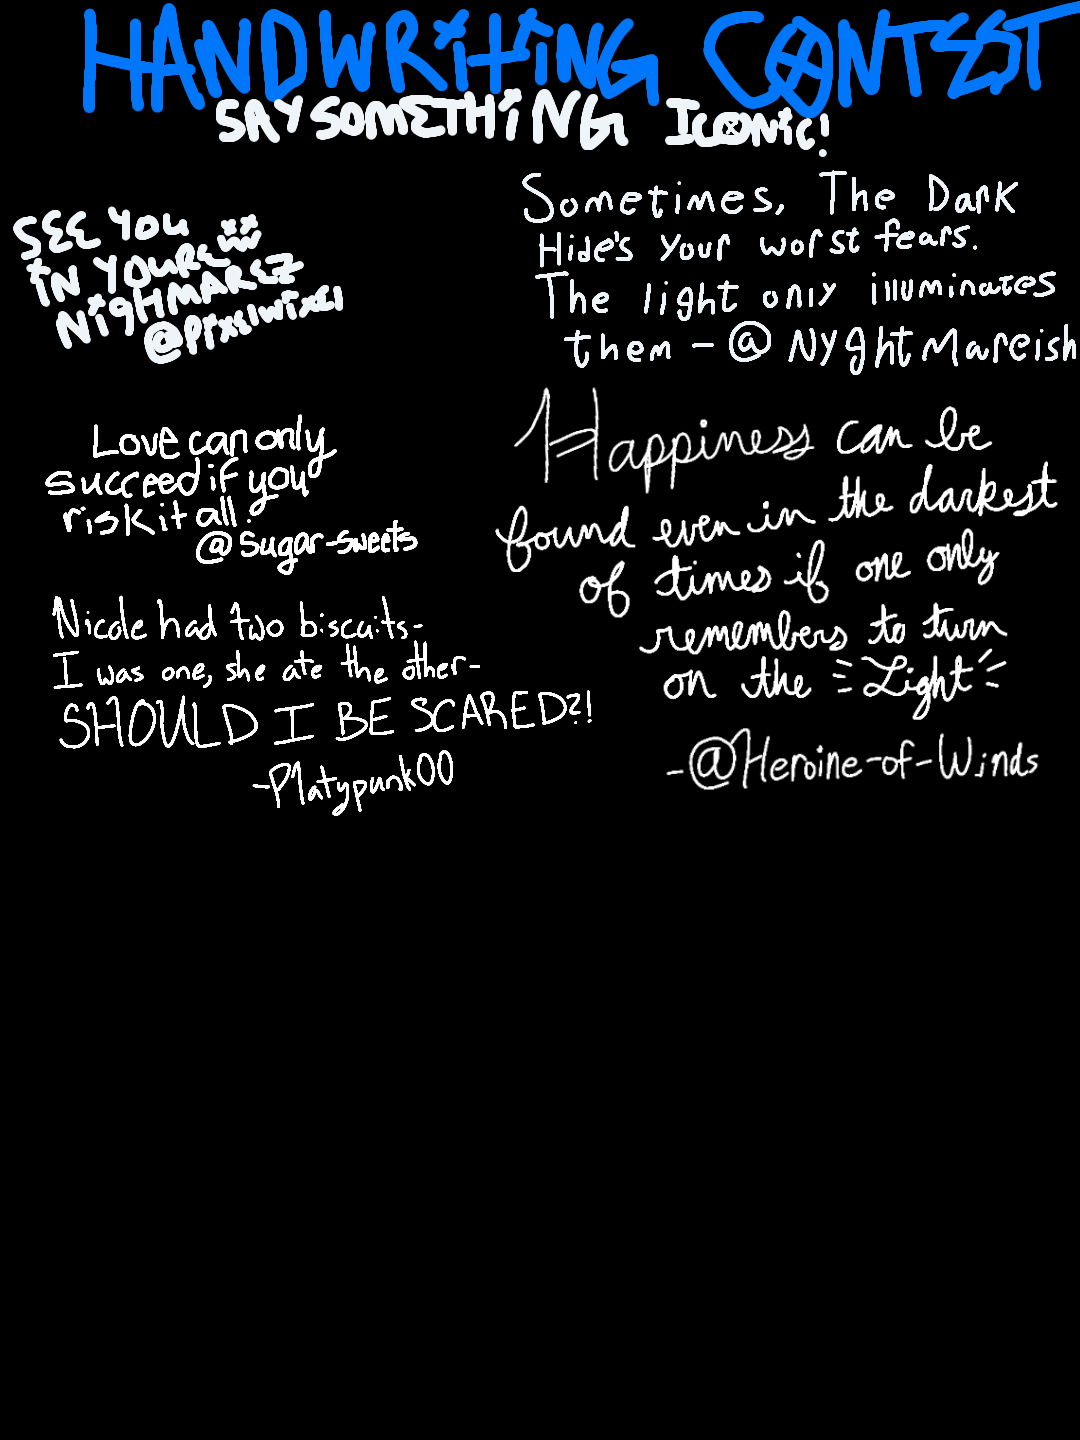 HANDWRiTiNG CONTEST
SAY SOMETHiNG ICONiC!
SEE YOU
iN YOURE
NiGHMAREZ
Sometimes, The Dark
Hide's your worst fears.
The light only illuminates
them - @NyghtMareish
Love can only
succeed if you
risk it all.
@Sugar-sweets
Happiness can be
found even in the darkest
of times if one only
remembers to turn
on the Light
-@Heroine-of-Winds
Nicole had two biscuits-
I was one, she ate the other-
SHOULD I BE SCARED?!
-Platypunk00